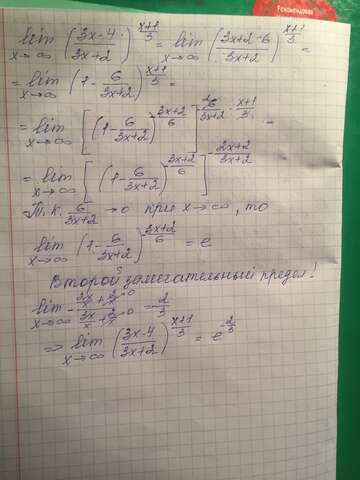 Рекомендован
lim x→∞ ((3x-4)/(3x+2))^((x+1)/3) = lim x→∞ ((3x+2-6)/(3x+2))^((x+1)/3) =
= lim x→∞ (1 - 6/(3x+2))^((x+1)/3) =
= lim x→∞ [(1 - 6/(3x+2))^(-(3x+2)/6)]^(-6/(3x+2) · (x+1)/3) =
= lim x→∞ [(1 - 6/(3x+2))^(-(3x+2)/6)]^(-(2x+2)/(3x+2))
Т.к. 6/(3x+2) → 0 при x→∞, то
lim x→∞ (1 - 6/(3x+2))^(-(3x+2)/6) = e
Второй замечательный предел!
lim x→∞ - (2x/x + 2/x→0)/(3x/x + 2/x→0) = -2/3
⇒ lim x→∞ ((3x-4)/(3x+2))^((x+1)/3) = e^(-2/3)